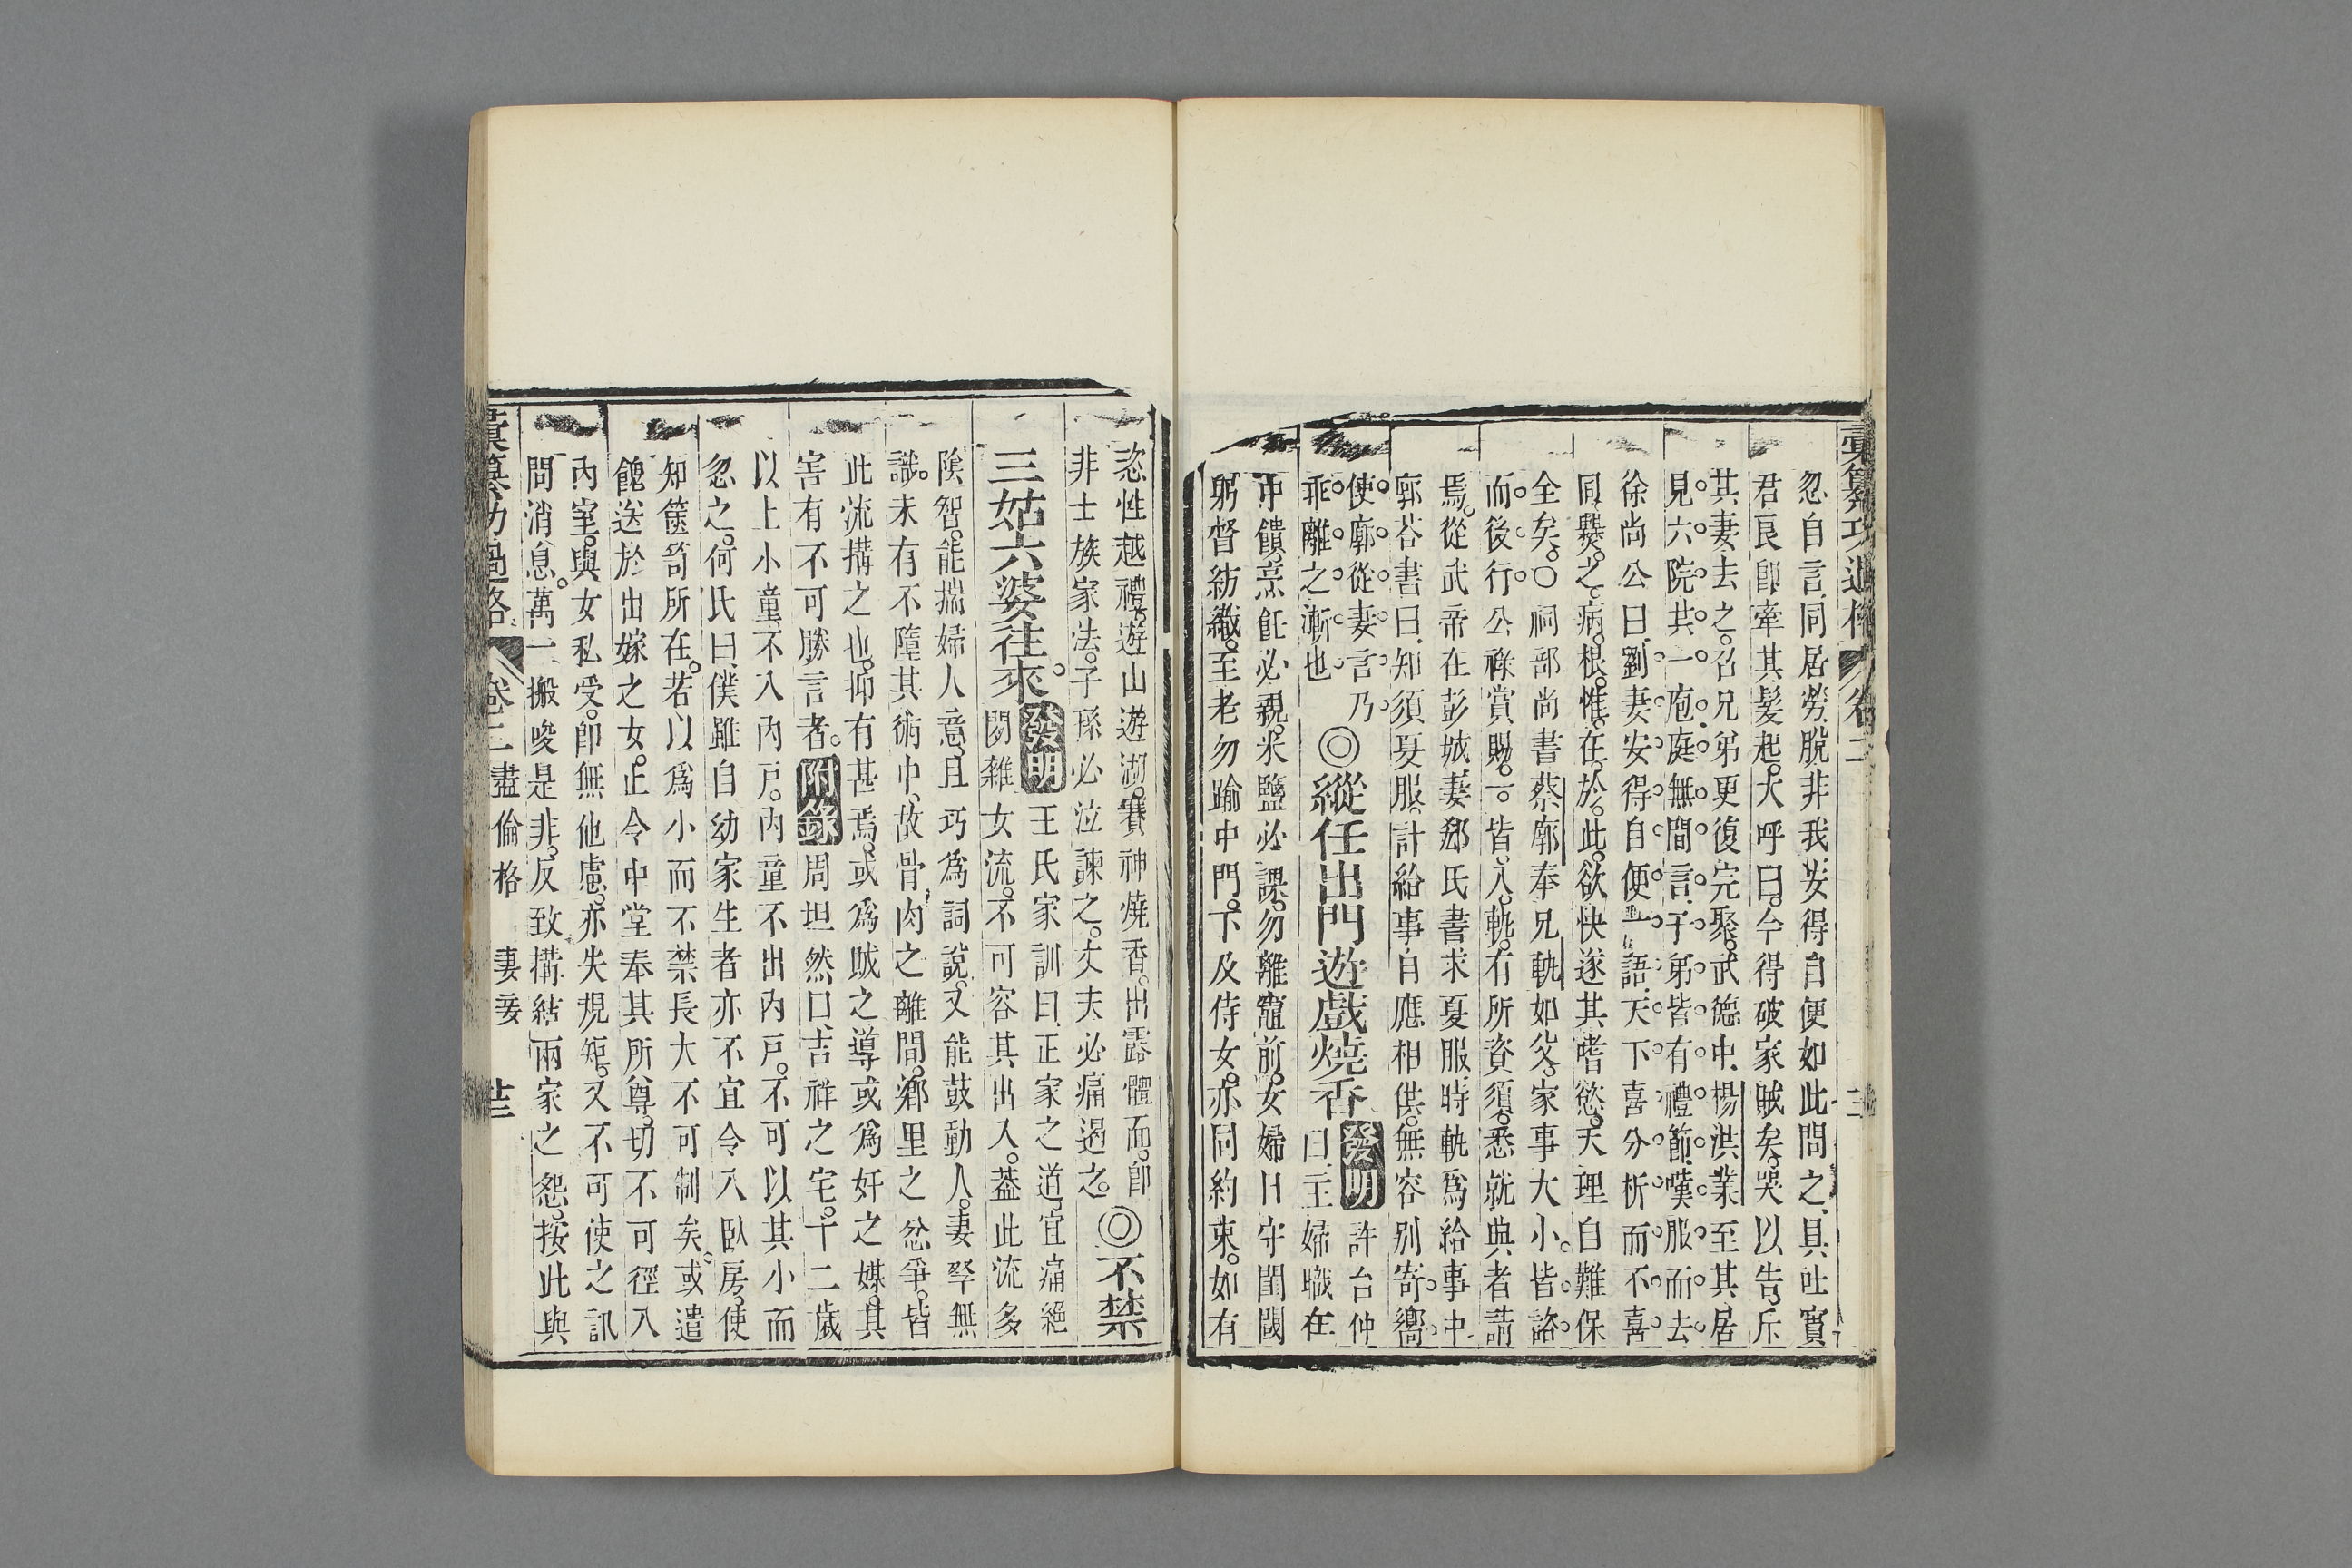 彙纂功過格 卷二
忽自言同居勞脫非我安得自便如此問之具吐實
君良卽牽其髮起大呼曰今得破家賊矣哭以告斥
其妻去之召兄弟更復完聚武德中楊洪業至其居
見六院共一庖庭無間言子弟皆有禮節嘆服而去
徐尚公曰劉妻安得自便一語天下喜分析而不喜
同爨之病根惟在於此欲快遂其嗜慾天理自難保
全矣〇祠部尚書蔡廓奉兄軌如父家事大小皆諮
而後行公祿賞賜一皆入軌有所資須悉就典者請
焉從武帝在彭城妻郄氏書求夏服時軌爲給事中
廓荅書曰知須夏服計給事自應相供無容別寄嚮
使廓從妻言乃
乖離之漸也
◎縱任出門遊戲燒香
發明許台仲
曰主婦職在
中饋烹飪必親米鹽必課勿離竈前女婦日守閨閫
躬督紡織至老勿踰中門下及侍女亦同約束如有
恣性越禮遊山遊湖賽神燒香出露體面卽
非士族家法子孫必泣諫之丈夫必痛遏之
◎不禁
三姑六婆往來
發明王氏家訓曰正家之道宜痛絕
閒雜女流不可容其出入蓋此流多
陰智能揣婦人意且巧爲詞說又能鼓動人妻孥無
識未有不墮其術中故骨肉之離間鄉里之忿爭皆
此流搆之也抑有甚焉或爲賊之導或爲奸之媒其
害有不可勝言者附錄周坦然曰吉祥之宅十二歲
以上小童不入內戶內童不出內戶不可以其小而
忽之何氏曰僕雖自幼家生者亦不宜令入臥房使
知篋笥所在若以爲小而不禁長大不可制矣或遣
餽送於出嫁之女止令中堂奉其所尊切不可徑入
內室與女私受卽無他慮亦失規矩又不可使之訊
問消息萬一搬唆是非反致搆結兩家之怨按此與
彙纂功過格 卷二 盡倫格 妻妾 廿三